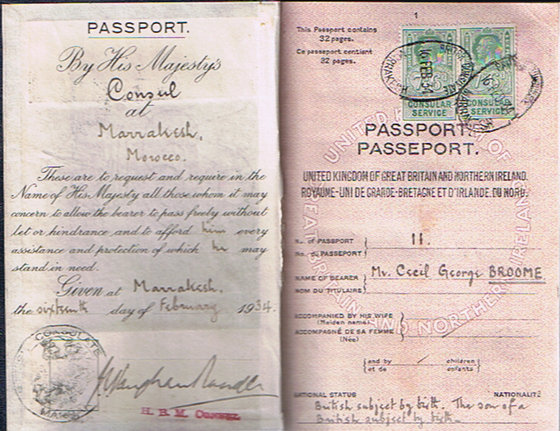 PASSPORT.
By His Majesty's
Consul
at
Marrakesh,
Morocco.
These are to request and require in the
Name of His Majesty all those whom it may
concern to allow the bearer to pass freely without
let or hindrance and to afford him every
assistance and protection of which he may
stand in need.
Given at Marrakesh.
the sixteenth day of February 1934.
CONSULATE
H.B.M. CONSUL
1
This Passport contains
32 pages.
Ce passeport contient
32 pages.
16 FEB 34
CONSULAR
SERVICE
CONSULAR
SERVICE
PASSPORT.
PASSEPORT.
UNITED KINGDOM OF GREAT BRITAIN AND NORTHERN IRELAND.
ROYAUME-UNI DE GRANDE-BRETAGNE ET D'IRLANDE DU NORD.
No. OF PASSPORT
No. DU PASSEPORT
11.
NAME OF BEARER
NOM DU TITULAIRE
Mr. Cecil George BROOME.
ACCOMPANIED BY HIS WIFE
(Maiden name)
ACCOMPAGNÉ DE SA FEMME
(Née)
and by
et de
children
enfants
NATIONAL STATUS
NATIONALITÉ
British subject by birth. The son of a
British subject by birth.